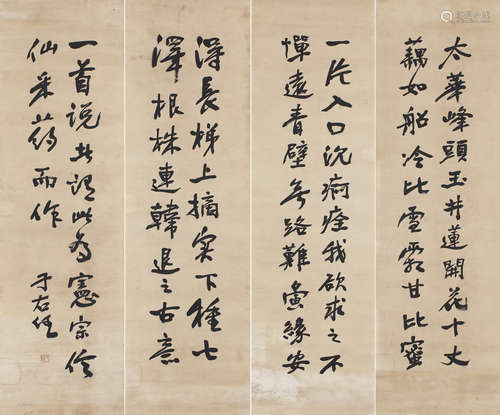 太華峰頭玉井蓮開花十丈
藕如船冷比雪霜甘比蜜
一片入口沉痾痊我欲求之不
憚遠青壁无路難夤緣安
得長梯上摘實下種七
澤根株連韓退之古意
一首說者謂此為憲宗信
仙采药而作
于右任